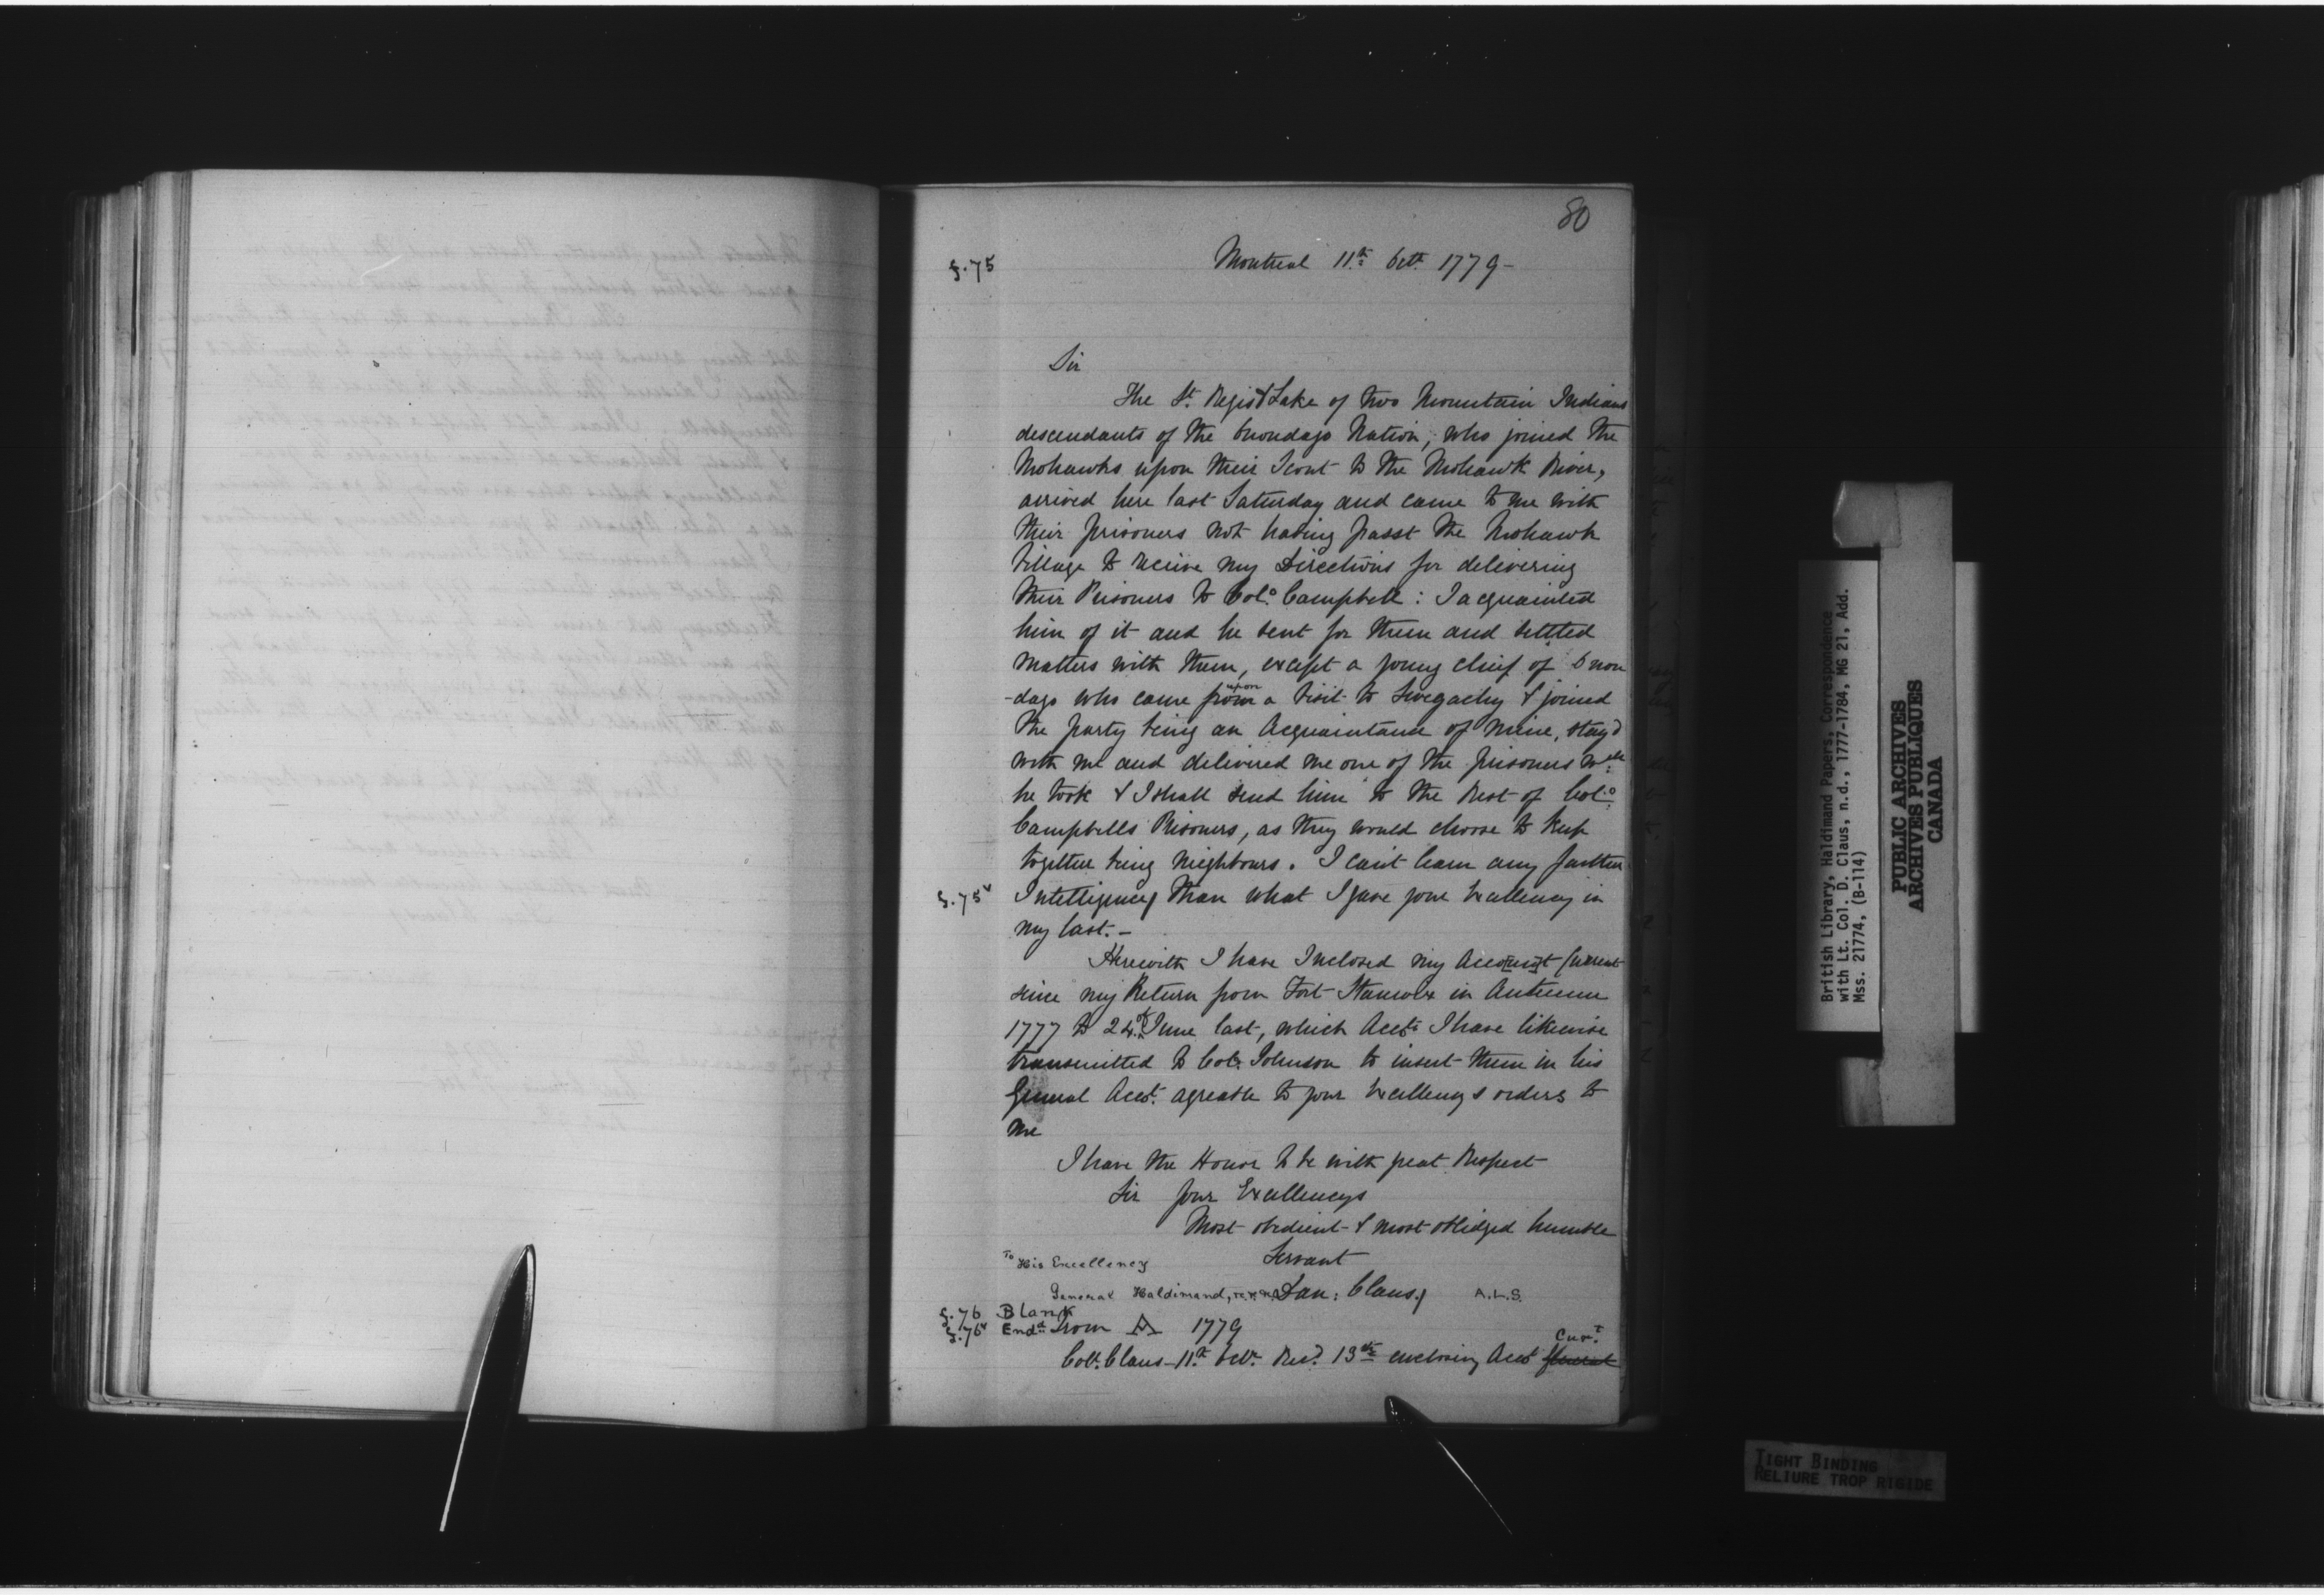 80
f.75
Montreal 11th Octr. 1779-
Sir
The St. Regis & Lake of two Mountain Indians
descendants of the Onondago Nation, who joined the
Mohawks upon their Scout to the Mohawk River,
arrived here last Saturday and came to me with
their prisoners not having passt the Mohawk
Village to receive my Directions for delivering
their Prisoners to Colo. Campbell: I acquainted
him of it and he sent for them and settled
matters with them, except a young chief of Onon
-dago who came from upon a Visit to Swegachy & joined
the party being an Acquaintance of mine, stay'd
with me and delivered me one of the prisoners wch
he took & I shall send him to the Rest of Colo.
Campbells Prisoners, as they would choose to keep
together being Neighbours. I can't learn any further
f.75v
Intelligence than what I gave your Excellency in
my last.-
Herewith I have Inclosed my Account Current
since my Return from Fort Stanwix in Autumn
1777 to 24th June last, which Accts. I have likewise
transmitted to Col. Johnson to insert them in his
General Acct. agreable to your Excellencys orders to
me
I have the Honor to be with great Respect
Sir your Excellencys
Most obedient & most oblidged humble
Servant
To His Excellency
General Haldimand,
Dan: Claus.
A.L.S.
f.76 Blank
f.76v Endd. From A 1779
Curt.
Coll. Claus 11th Octr. Recd. 13th enclosing Acct General
British Library, Haldimand Papers, Correspondence
with Lt. Col. D. Claus, n.d., 1777-1784, MG 21, Add.
Mss. 21774, (B-114)
PUBLIC ARCHIVES
ARCHIVES PUBLIQUES
CANADA
TIGHT BINDING
RELIURE TROP RIGIDE